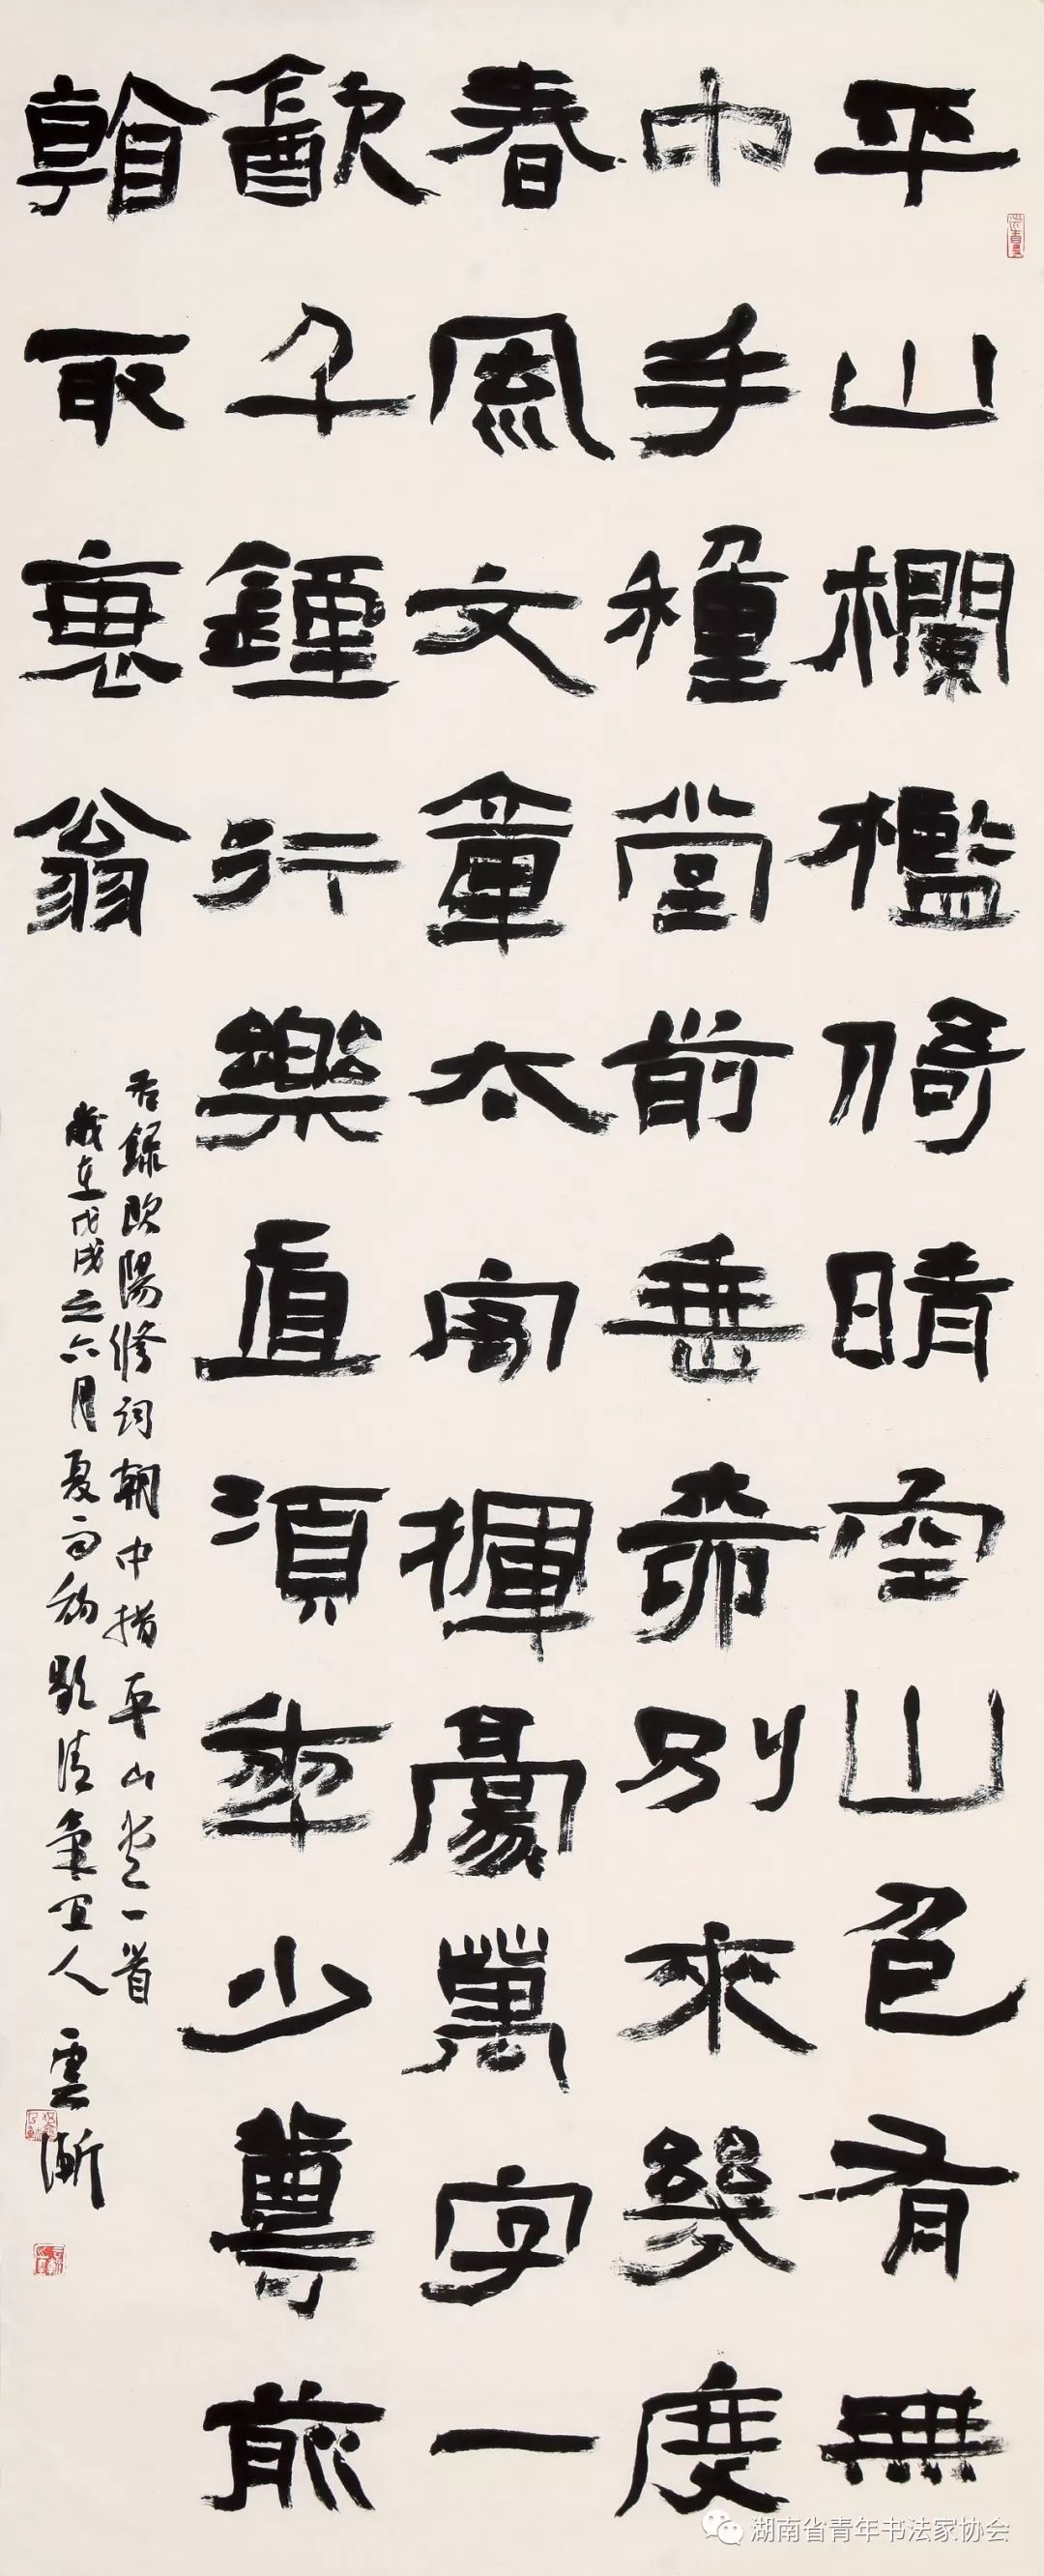 平山欄檻倚晴空山色有無
中手種堂前垂柳別來幾度
春風文章太守揮豪萬字一
㱃千鍾行樂直須年少尊前
看取衰翁
右錄歐陽修詞朝中措平山堂一首
歲在戊戌之六月夏雨初歇清氣宜人
雲漸
湖南省青年书法家协会